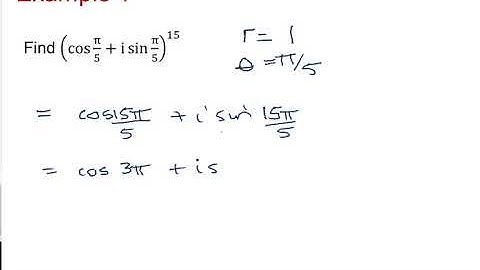 Find (cos π/5 + i sin π/5)^15
r = 1
θ = π/5
= cos 15π/5 + i sin 15π/5
= cos 3π + i s